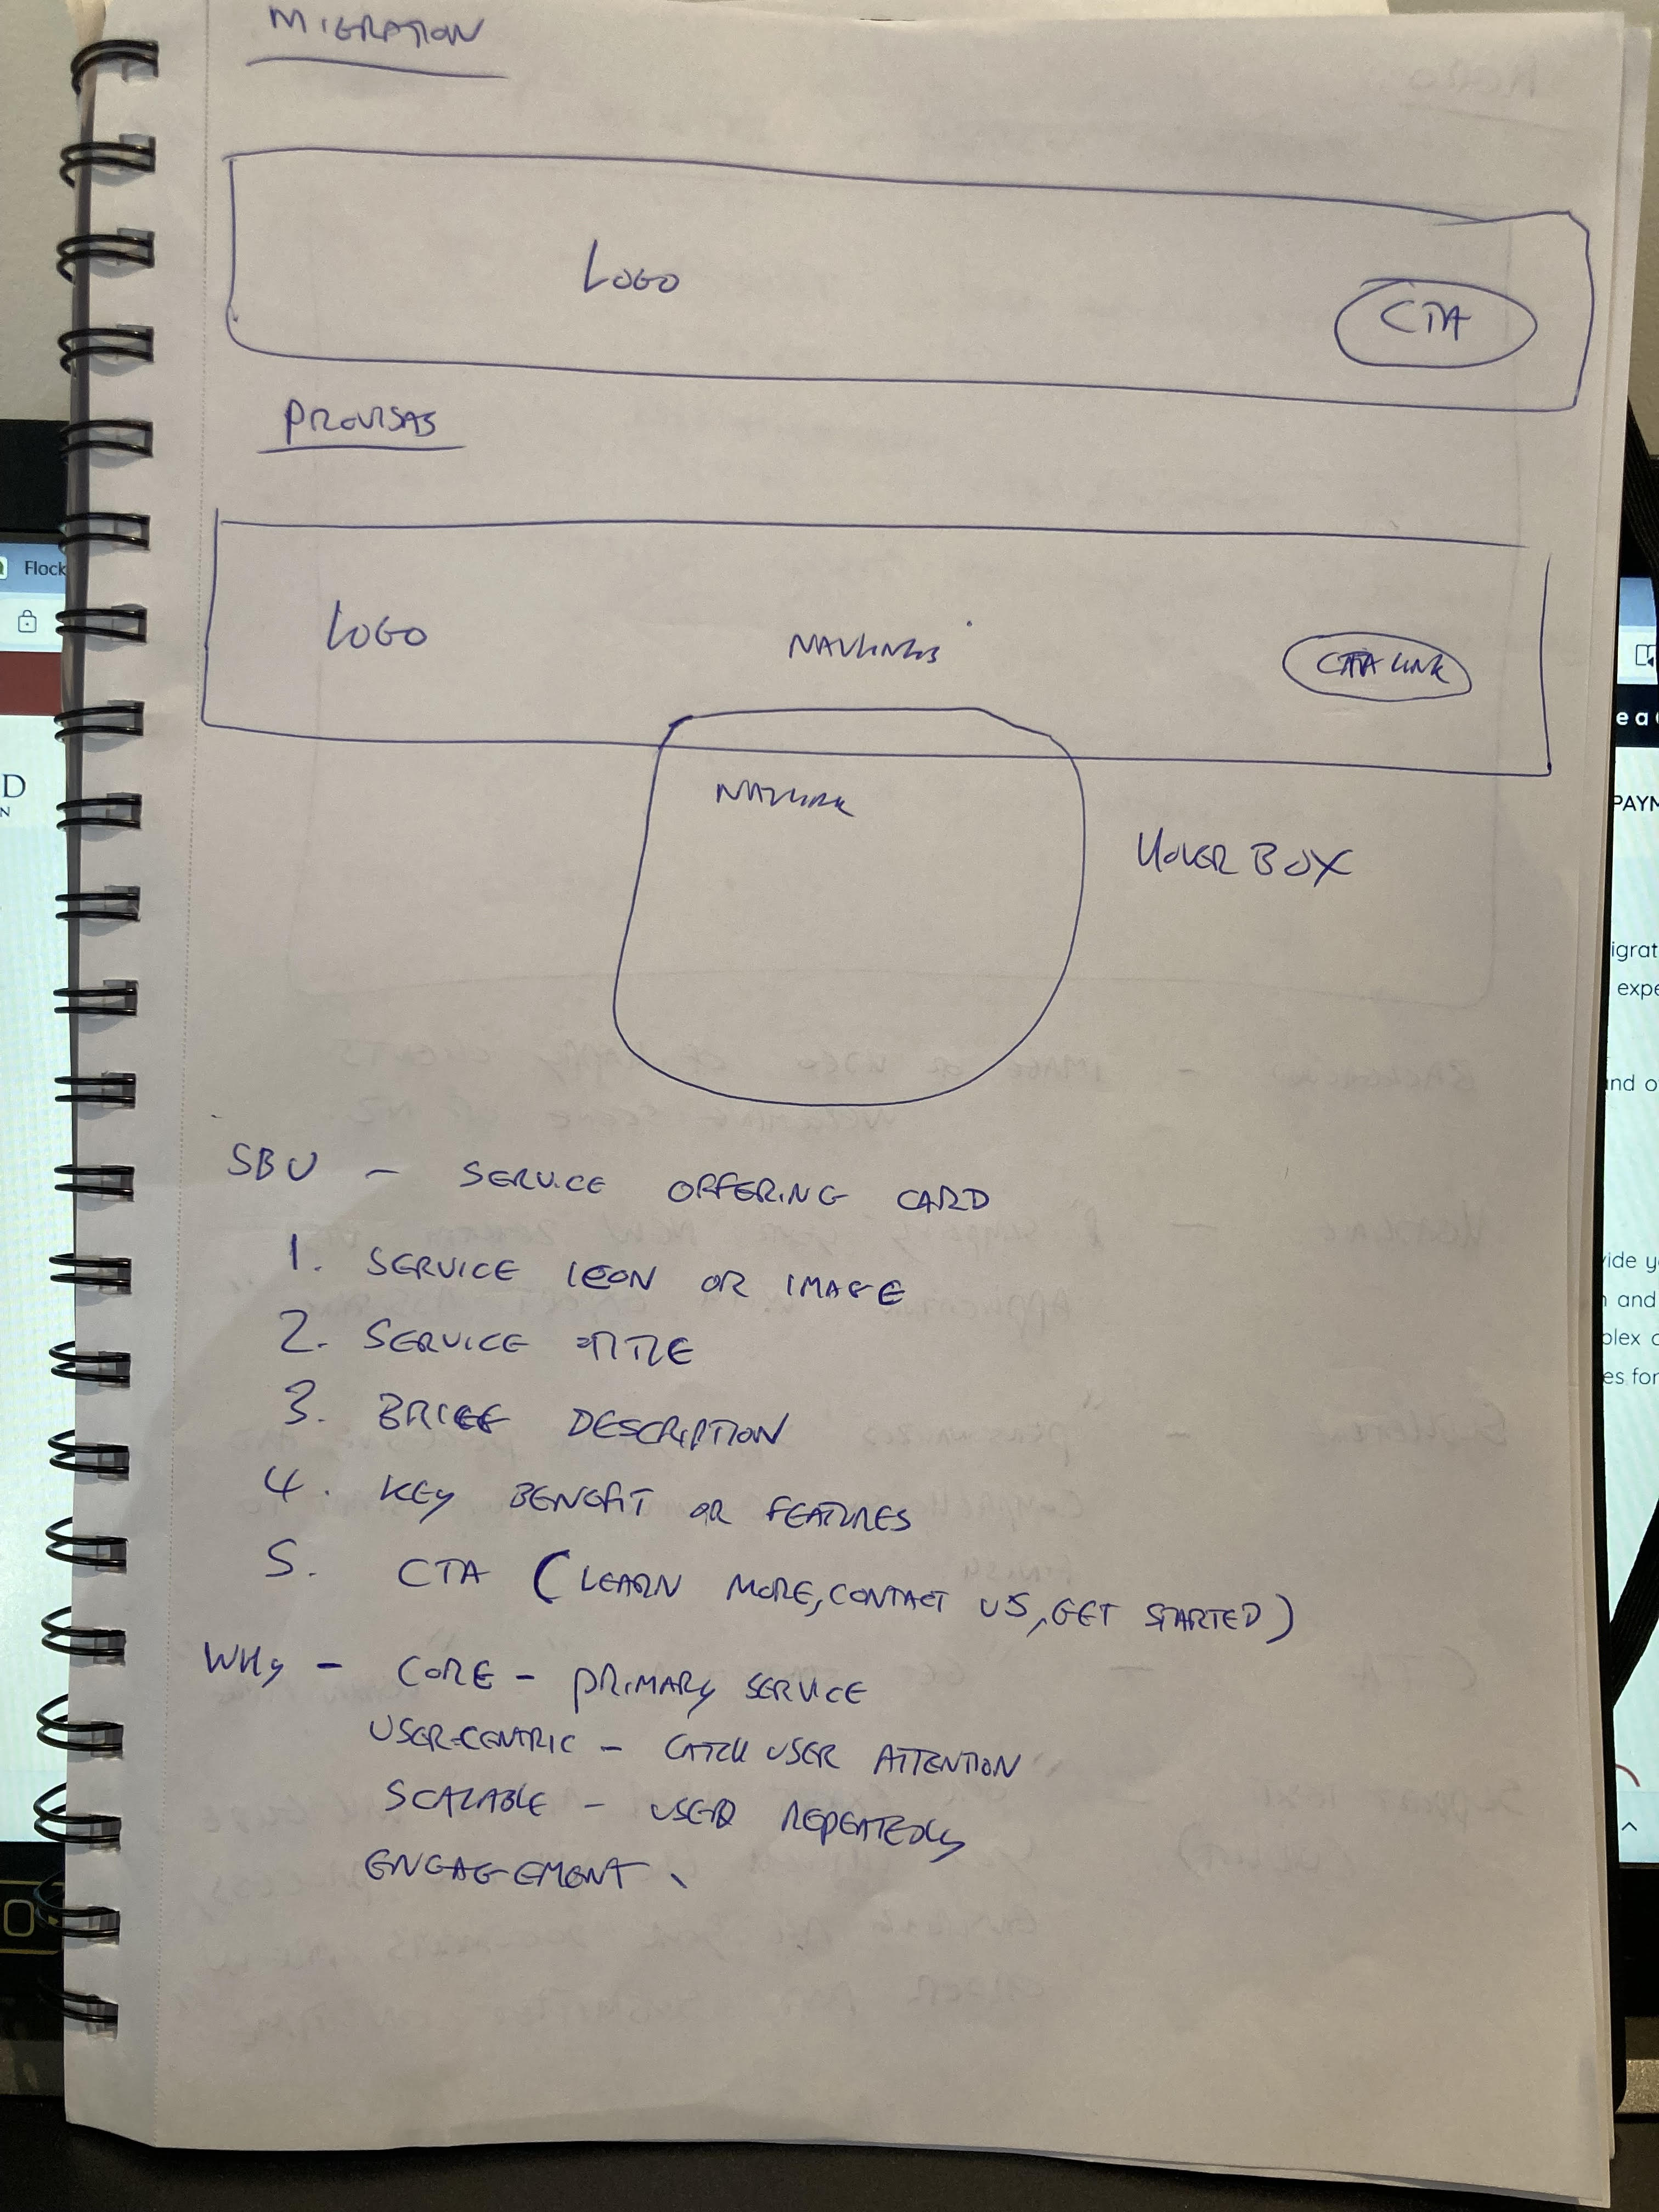 MIGRATION
LOGO
CTA
PROVISAS
LOGO
NAVLINKS
CTA LINK
NAVLINK
HOVER BOX
SBU - SERVICE OFFERING CARD
1. SERVICE ICON OR IMAGE
2. SERVICE TITLE
3. BRIEF DESCRIPTION
4. KEY BENEFIT OR FEATURES
5. CTA (LEARN MORE, CONTACT US, GET STARTED)
WHY - CORE - PRIMARY SERVICE
USER-CENTRIC - CATCH USER ATTENTION
SCALABLE - USED REPEATEDLY
ENGAGEMENT
Flock
D
N
ea
PAYM
igrat
expe
and o
vide y
n and
plex c
es for